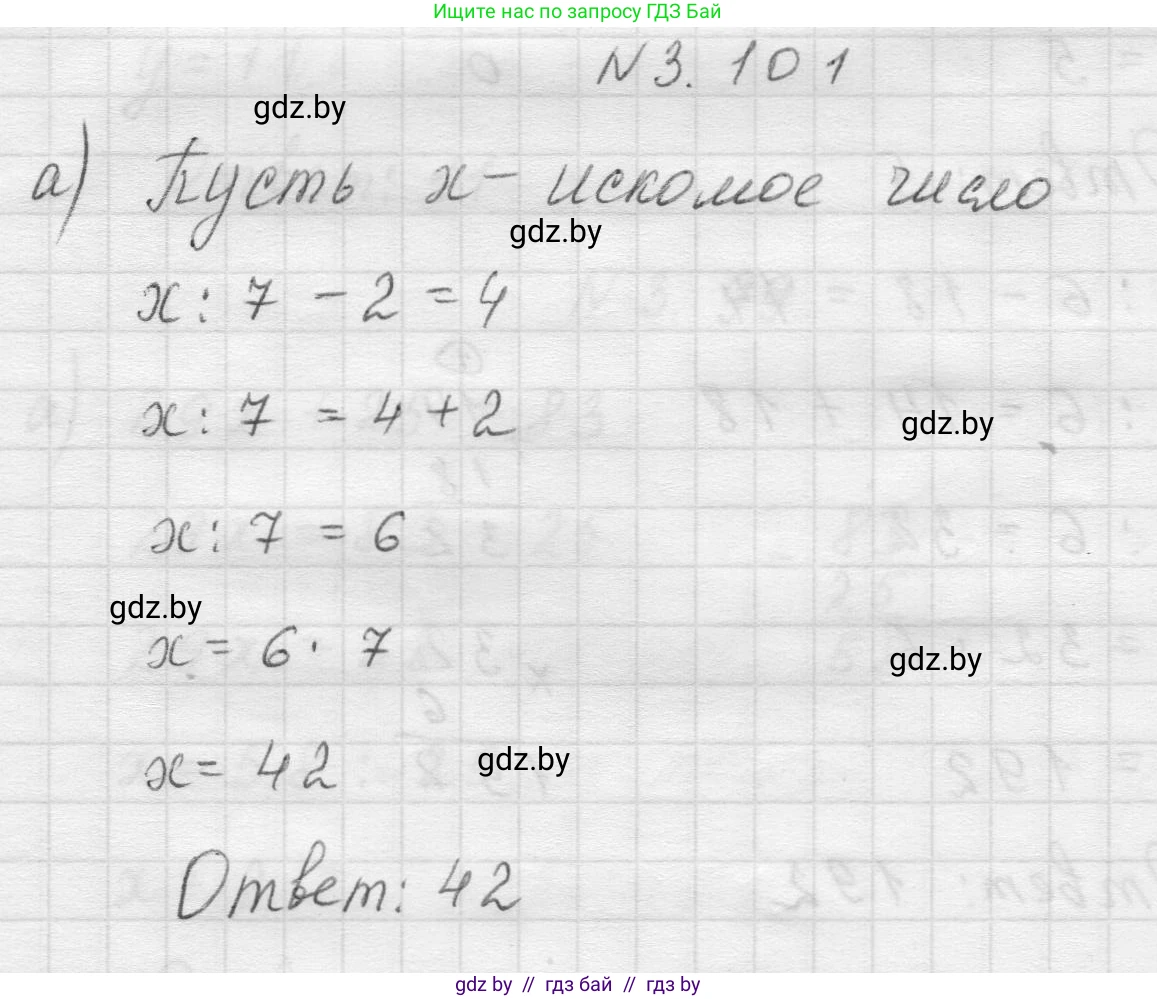 Ищите нас по запросу ГДЗ Бай
N 3. 101
gdz.by
а) Пусть x - искомое число
gdz.by
x : 7 - 2 = 4
x : 7 = 4 + 2
gdz.by
x : 7 = 6
gdz.by
x = 6 · 7
gdz.by
x = 42
gdz.by
Ответ: 42
gdz.by // гдз бай // гдз by